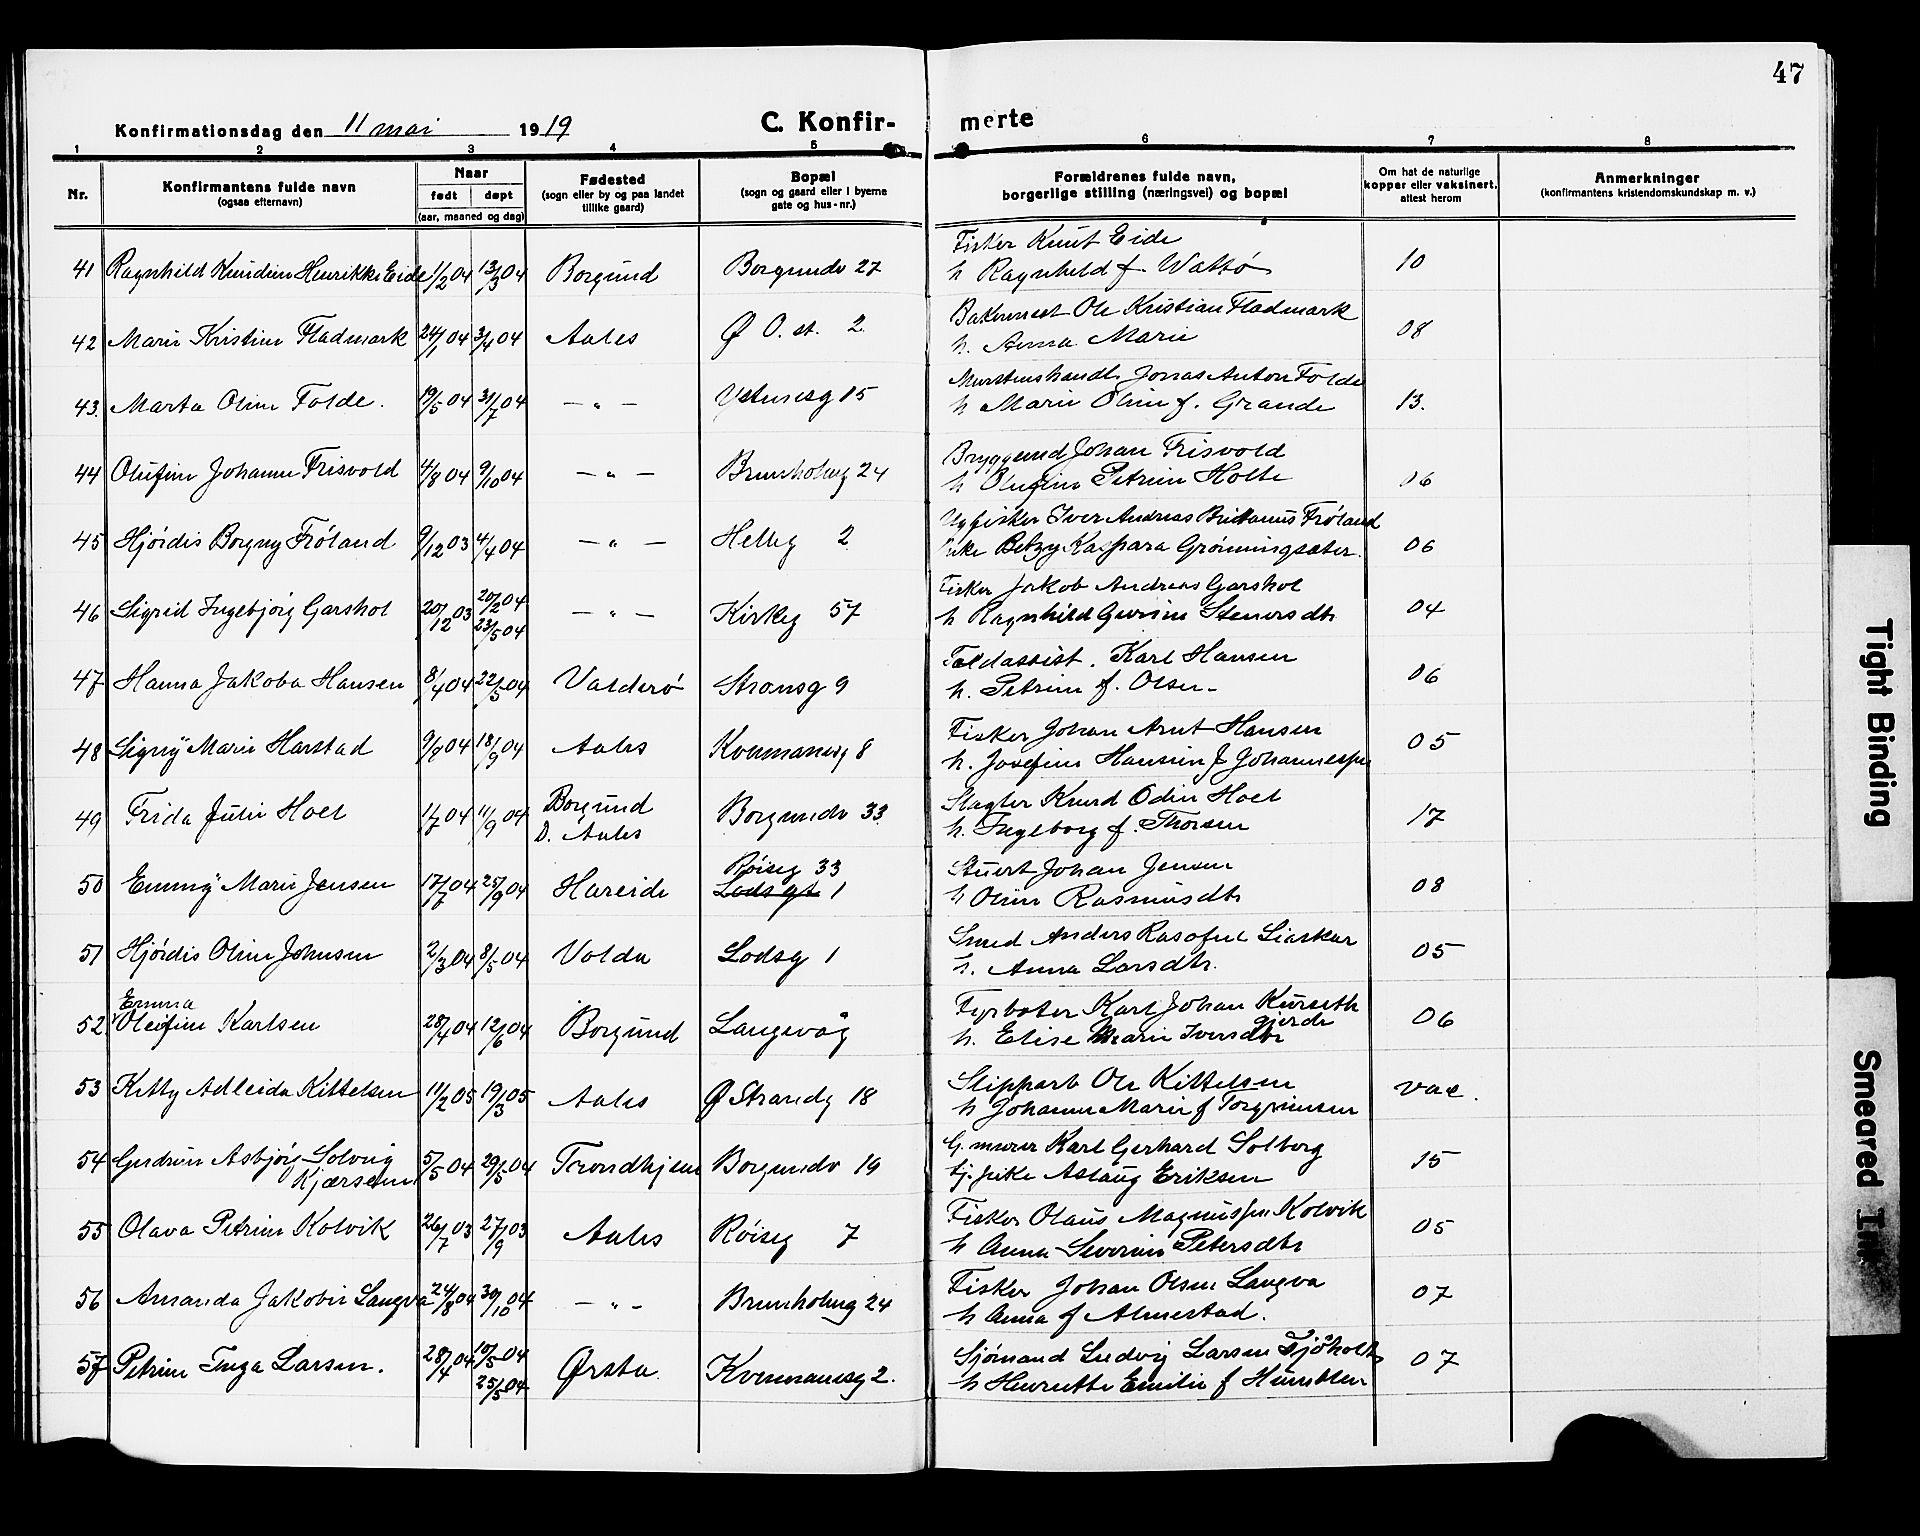 47
Konfirmationsdag den 11 mai 1919
C. Konfir- merte
1 2 3 4 5 6 7 8
Nr.
Konfirmantens fulde navn
(ogsaa efternavn)
Naar
født døpt
(aar, maaned og dag)
Fødested
(sogn eller by og paa landet
tillike gaard)
Bopæl
(sogn og gaard eller i byerne
gate og hus-nr.)
Forældrenes fulde navn,
borgerlige stilling (næringsvei) og bopæl
Om hat de naturlige
kopper eller vaksinert,
attest herom
Anmerkninger
(konfirmantens kristendomskundskap m. v.)
Fisker Knut Eide
41 Ragnhild Knudine Henrikke Eide 1/2 04 13/3 04 Borgund Borgundv 27 h Ragnhild f. Wattø 10
Bakermest Ole Kristian Fladmark
42 Marie Kristine Fladmark 24/1 04 3/4 04 Aales Ø O. st. 2 h. Anna Marie 08
Jonas Anton Folde
43. Marta Oline Folde. 19/5 04 31/7 04 — „ — 15 h Marie Oline f. Grande 13.
Johan Frisvold
44 Olufine Johanne Frisvold 4/8 04 9/10 04 — „ — Brunholmg 24 h Olufine Petrine Holte 06
Iver Andreas Frøland
45 Hjørdis Borgny Frøland 9/12 03 4/4 04 — „ — Helleg 2 Betzy Kaspara Grønningsæter. 06
Fisker Jakob Andreas Garshol
46 Sigrid Ingebjørg Garshol 20/12 03 20/2 04 23/5 04 — „ — Kirkeg 57 h Ragnhild Stenersdtr 04
Toldassist. Karl Hansen
47 Hanna Jakoba Hansen 8/4 04 22/5 04 Valderø Stransg 9 h. Petrine f. Olsen 06
Fisker Johan Arnt Hansen
48 Signÿ Marie Harstad 9/7 04 18/9 04 Aales Kvenmannsg 8 h. Josefine Hansine f Johannessen 05
Slagter Knud Odin Hoel
49 Frida Julie Hoel 1/7 04 11/9 04 Borgund D. Aales Borgundv 33 h. Ingeborg f. Thorsen 17
Røiseg 33 Stuert Johan Jensen
50 Emmÿ Marie Jensen 17/7 04 25/9 04 Hareide Lodsgt 1 h Oline Rasmusdtr 08
Smed Anders Liaskar
51 Hjørdis Oline Johnsen 2/3 04 8/5 04 Volda Lodsg 1 h. Anna Larsdtr. 05
Emma Fyrbøter Karl Johan
52 Oleifine Karlsen 28/4 04 12/6 04 Borgund Langevåg gjerde h. Elise Marie Iversdtr 06
Ole Kittelsen
53 Kitty Adleida Kittelsen 11/2 05 19/3 05 Aales Ø Strandg 18 h Johanne Marie f 
vac.
G. murer Karl Gerhard Solberg
54 Gudrun Asbjørg Solveig Kjærsem 5/5 04 29/5 04 Trondhjem Borgundv 19 Aslaug Eriksen 15
Fisker Olaus Magnussen Kolvik
55 Olava Petrine Kolvik 26/7 03 27/9 03 Aales Røiseg 7 h Anna Severine Petersdtr 05
Fisker Johan Olsen Langva
56 Amanda Jakobie Langva 24/8 04 30/10 04 — „ — Brunholmg 24 h Anna f Almestad. 07
Sjømand Ludvig Larsen Sjøholt
57 Petrine Inga Larsen. 28/4 04 10/5 04 25/5 04 Ørsta. Kvenmannsg 2. h Henriette Emilie f Humblen 07
Tight Binding
Smeared Ink